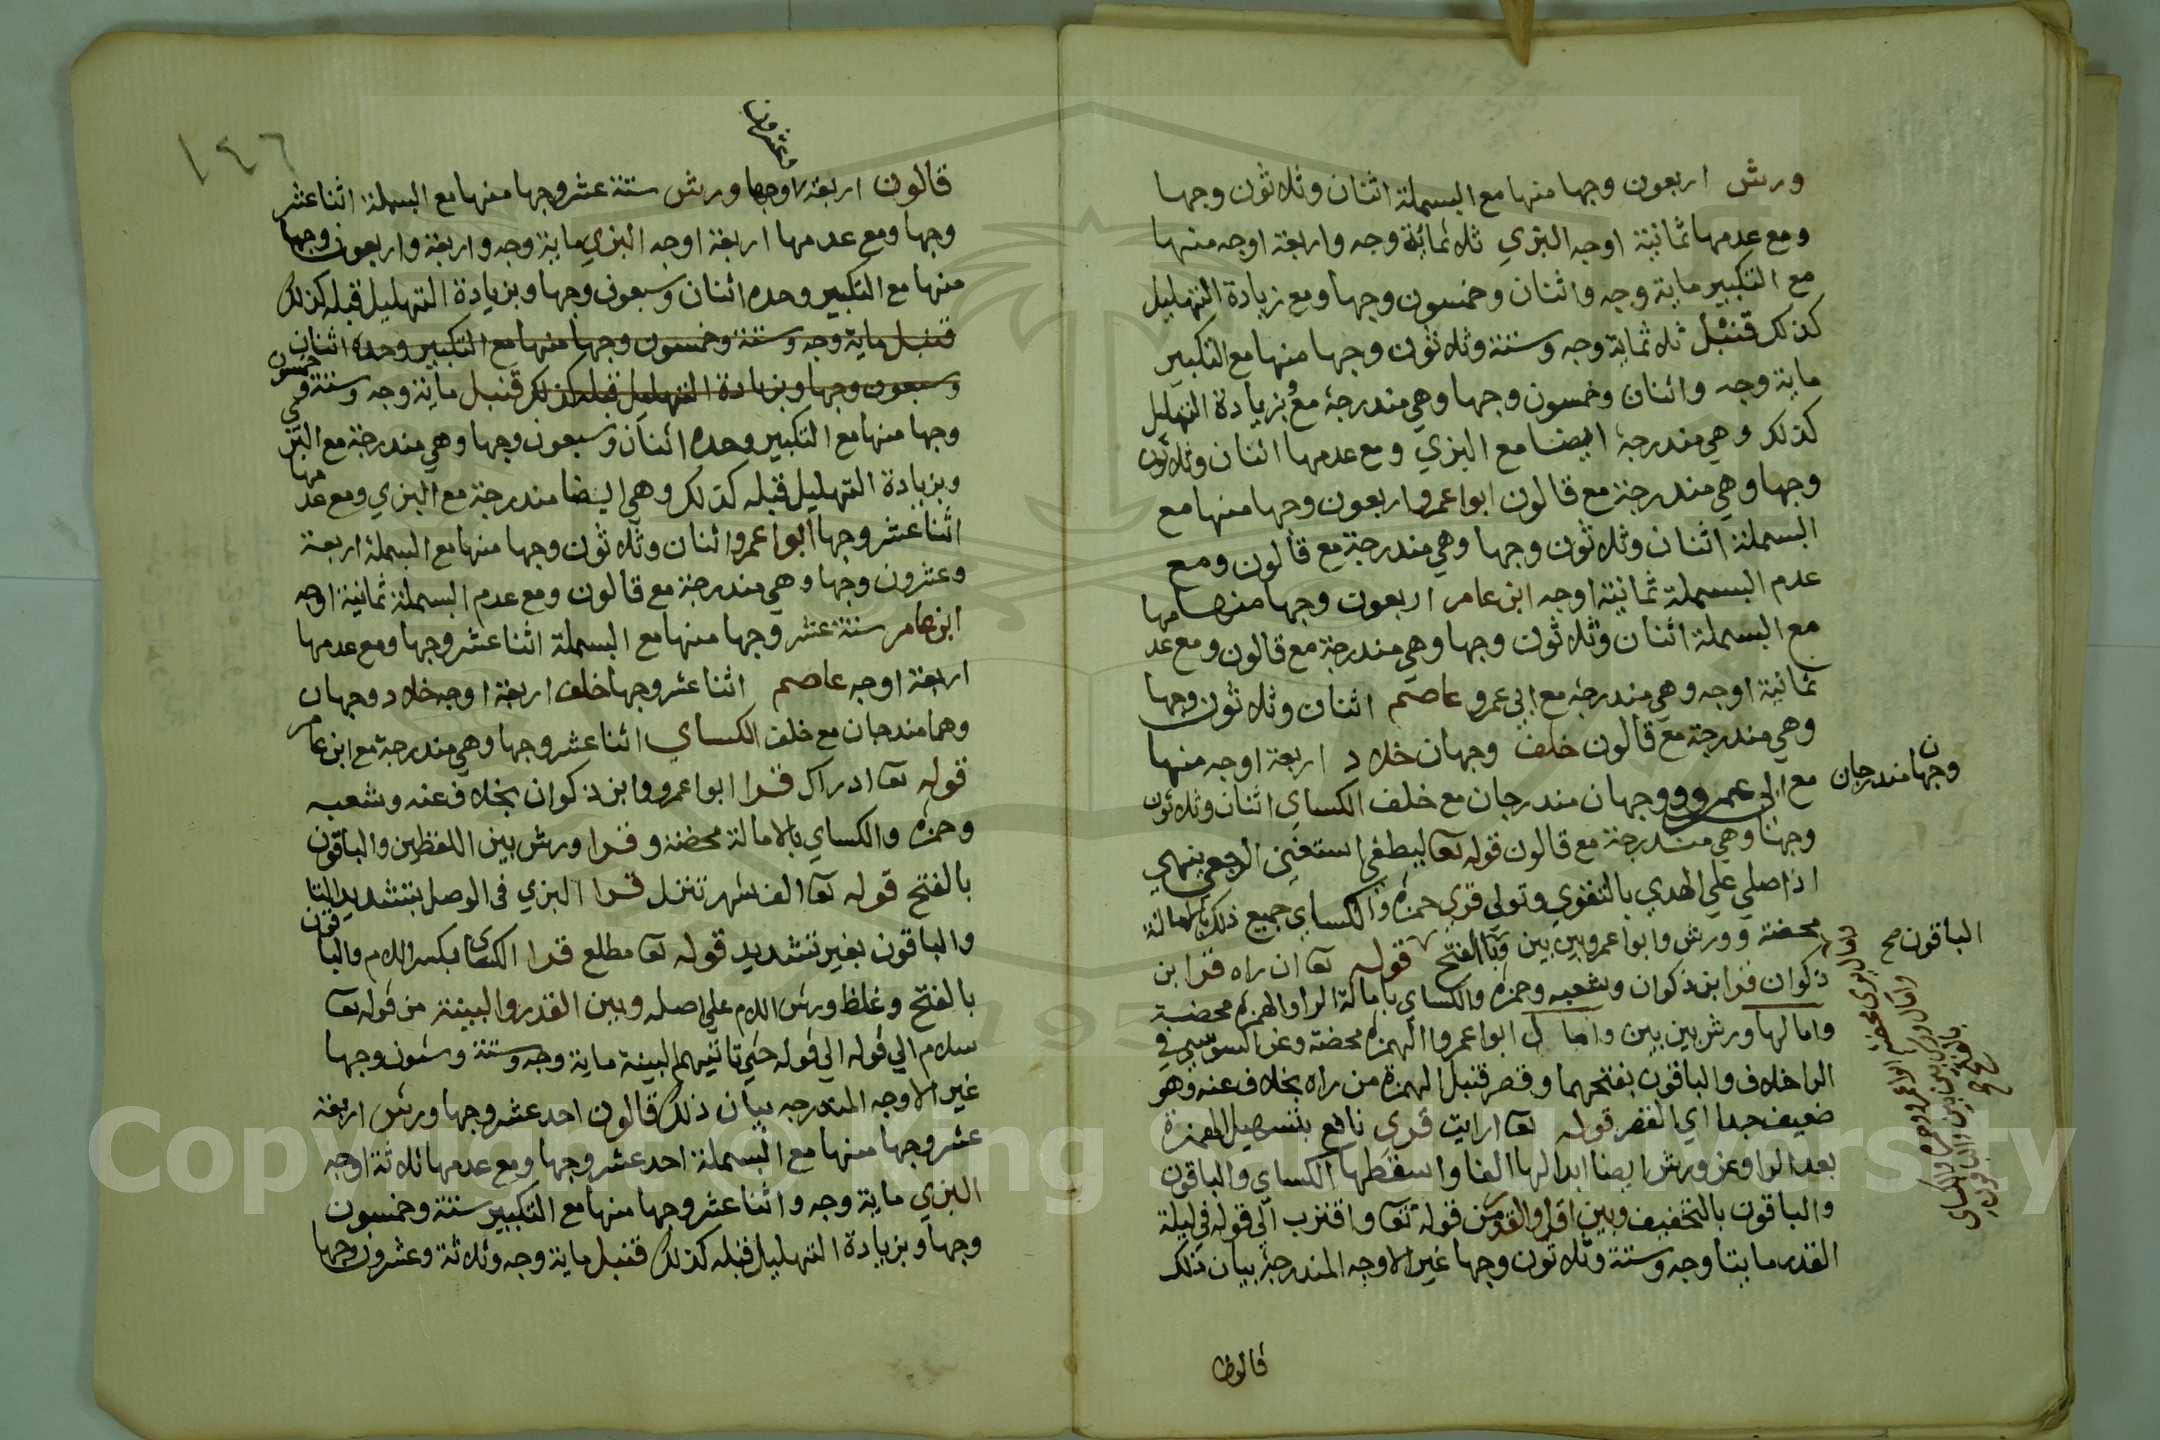 ورش اربعون وجها منها مع البسملة اثنان وثلاثون وجها
ومع عدمها ثمانية اوجه البزي ثلاثمائة وجه واربعة اوجه منها
مع التكبير ماية وجه واثنان وخمسون وجها ومع زيادة التهليل
كذلك قنبل ثلاثماية وجه وستة وثلاثون وجها منها مع التكبير
ماية وجه واثنان وخمسون وجها وهي مندرجة معه وبزيادة التهليل
كذلك وهي مندرجة ايضا مع البزي ومع عدمها اثنان وثلاثون
وجها وهي مندرجة مع قالون ابوا عمرو اربعون وجها منها مع
البسملة اثنان وثلاثون وجها وهي مندرجة مع قالون ومع
عدم البسملة ثمانية اوجه ابن عامر اربعون وجها منها
مع البسملة اثنان وثلاثون وجها وهي مندرجة مع قالون ومع عدمها
ثمانية اوجه وهي مندرجة مع ابي عمرو عاصم اثنان وثلاثون وجها
وهي مندرجة مع قالون خلف وجهان خلاد اربعة اوجه منها
وجهان مندرجان
مع ابي عمرو ووجهان مندرجان مع خلف الكساي اثنان وثلاثون
وجها وهي مندرجة مع قالون قوله تعا ليطغي استغني الرجعي ينهي
اذا صلي علي الهدي بالتقوي وتولي قري حمزة والكساي جميع ذلك بالامالة
محضة وورش وابوا عمرو بين بين وبالفتح قوله تعا ان راه قرا ابن
الباقون صح
ذكوان قرا ابن ذكوان وشعبه وحمزة والكساي بامالة الرا والهمزة محضة
وامالها ورش بين بين وامال ابوا عمرو الهمزة محضة وعن السوسي في
الرا خلاف والباقون بفتحهما وقصر قنبل الهمزة من راه بخلاف عنه وهو
ضعيف جدا اي القصر قوله تعا ارايت قري نافع بتسهيل الهمزة
بعد الرا وعن ورش ايضا ابدالها الفا واسقطها الكساي والباقون
والباقون بالتخفيف وبين اقرا والقدر من قوله تعا واقترب الي قوله في ليلة
القدر مايتا وجه وستة وثلاثون وجها غير الاوجه المندرجة بيان ذلك
وامال يري محضة ابوا عمرو وحمزة والكساي
وامال ورش بين بين والباقون
بالفتح صح
قالون
١٤٦
وعشرون
قالون اربعة اوجها ورش ستة عشر وجها منها مع البسملة اثنا عشر
وجها ومع عدمها اربعة اوجه البزي ماية وجه واربعة واربعون وجها
منها مع التكبير وحده اثنان وسبعون وجها وبزيادة التهليل قبله كذلك
قنبل ماية وجه وستة وخمسون وجها منها مع التكبير وحده اثنان
وسبعون وجها وبزيادة التهليل قبله كذلك قنبل ماية وجه وستة وخمسون
وجها منها مع التكبير وحده اثنان وسبعون وجها وهي مندرجة مع البزي
وبزيادة التهليل قبله كذلك وهي ايضا مندرجة مع البزي ومع عدمها
اثنا عشر وجها ابوا عمرو اثنان وثلاثون وجها منها مع البسملة اربعة
وعشرون وجها وهي مندرجة مع قالون ومع عدم البسملة ثمانية اوجه
ابن عامر ستة عشر وجها منها مع البسملة اثنا عشر وجها ومع عدمها
اربعة اوجه عاصم اثنا عشر وجها خلف اربعة اوجه خلاد وجهان
وهما مندرجان مع خلف الكساي اثنا عشر وجها وهي مندرجة مع ابن عامر
قوله تعا ادراك قرا ابوا عمرو وابن ذكوان بخلاف عنه وشعبه
وحمزة والكساي بالامالة محضة وقرا ورش بين اللفظين والباقون
بالفتح قوله تعا الف شهر تنزل قرا البزي في الوصل بتشديد التا
والباقون بغير تشديد قوله تعا مطلع قرا الكساي بكسر اللام والباقون
بالفتح وغلظ ورش اللام علي اصله وبين القدر والبينة من قوله تعا
سلام الي قوله الي قوله حتي تاتيهم البينة ماية وجه وستة وستون وجها
غير الاوجه المندرجه بيان ذلك قالون احد عشر وجها ورش اربعة
عشر وجها منها مع البسملة احد عشر وجها ومع عدمها ثلاثة اوجه
البزي ماية وجه واثنا عشر وجها منها مع التكبير ستة وخمسون
وجها وبزيادة التهليل قبله كذلك قنبل ماية وجه وثلاثة وعشرون وجها
Copyright © King Saud University
195